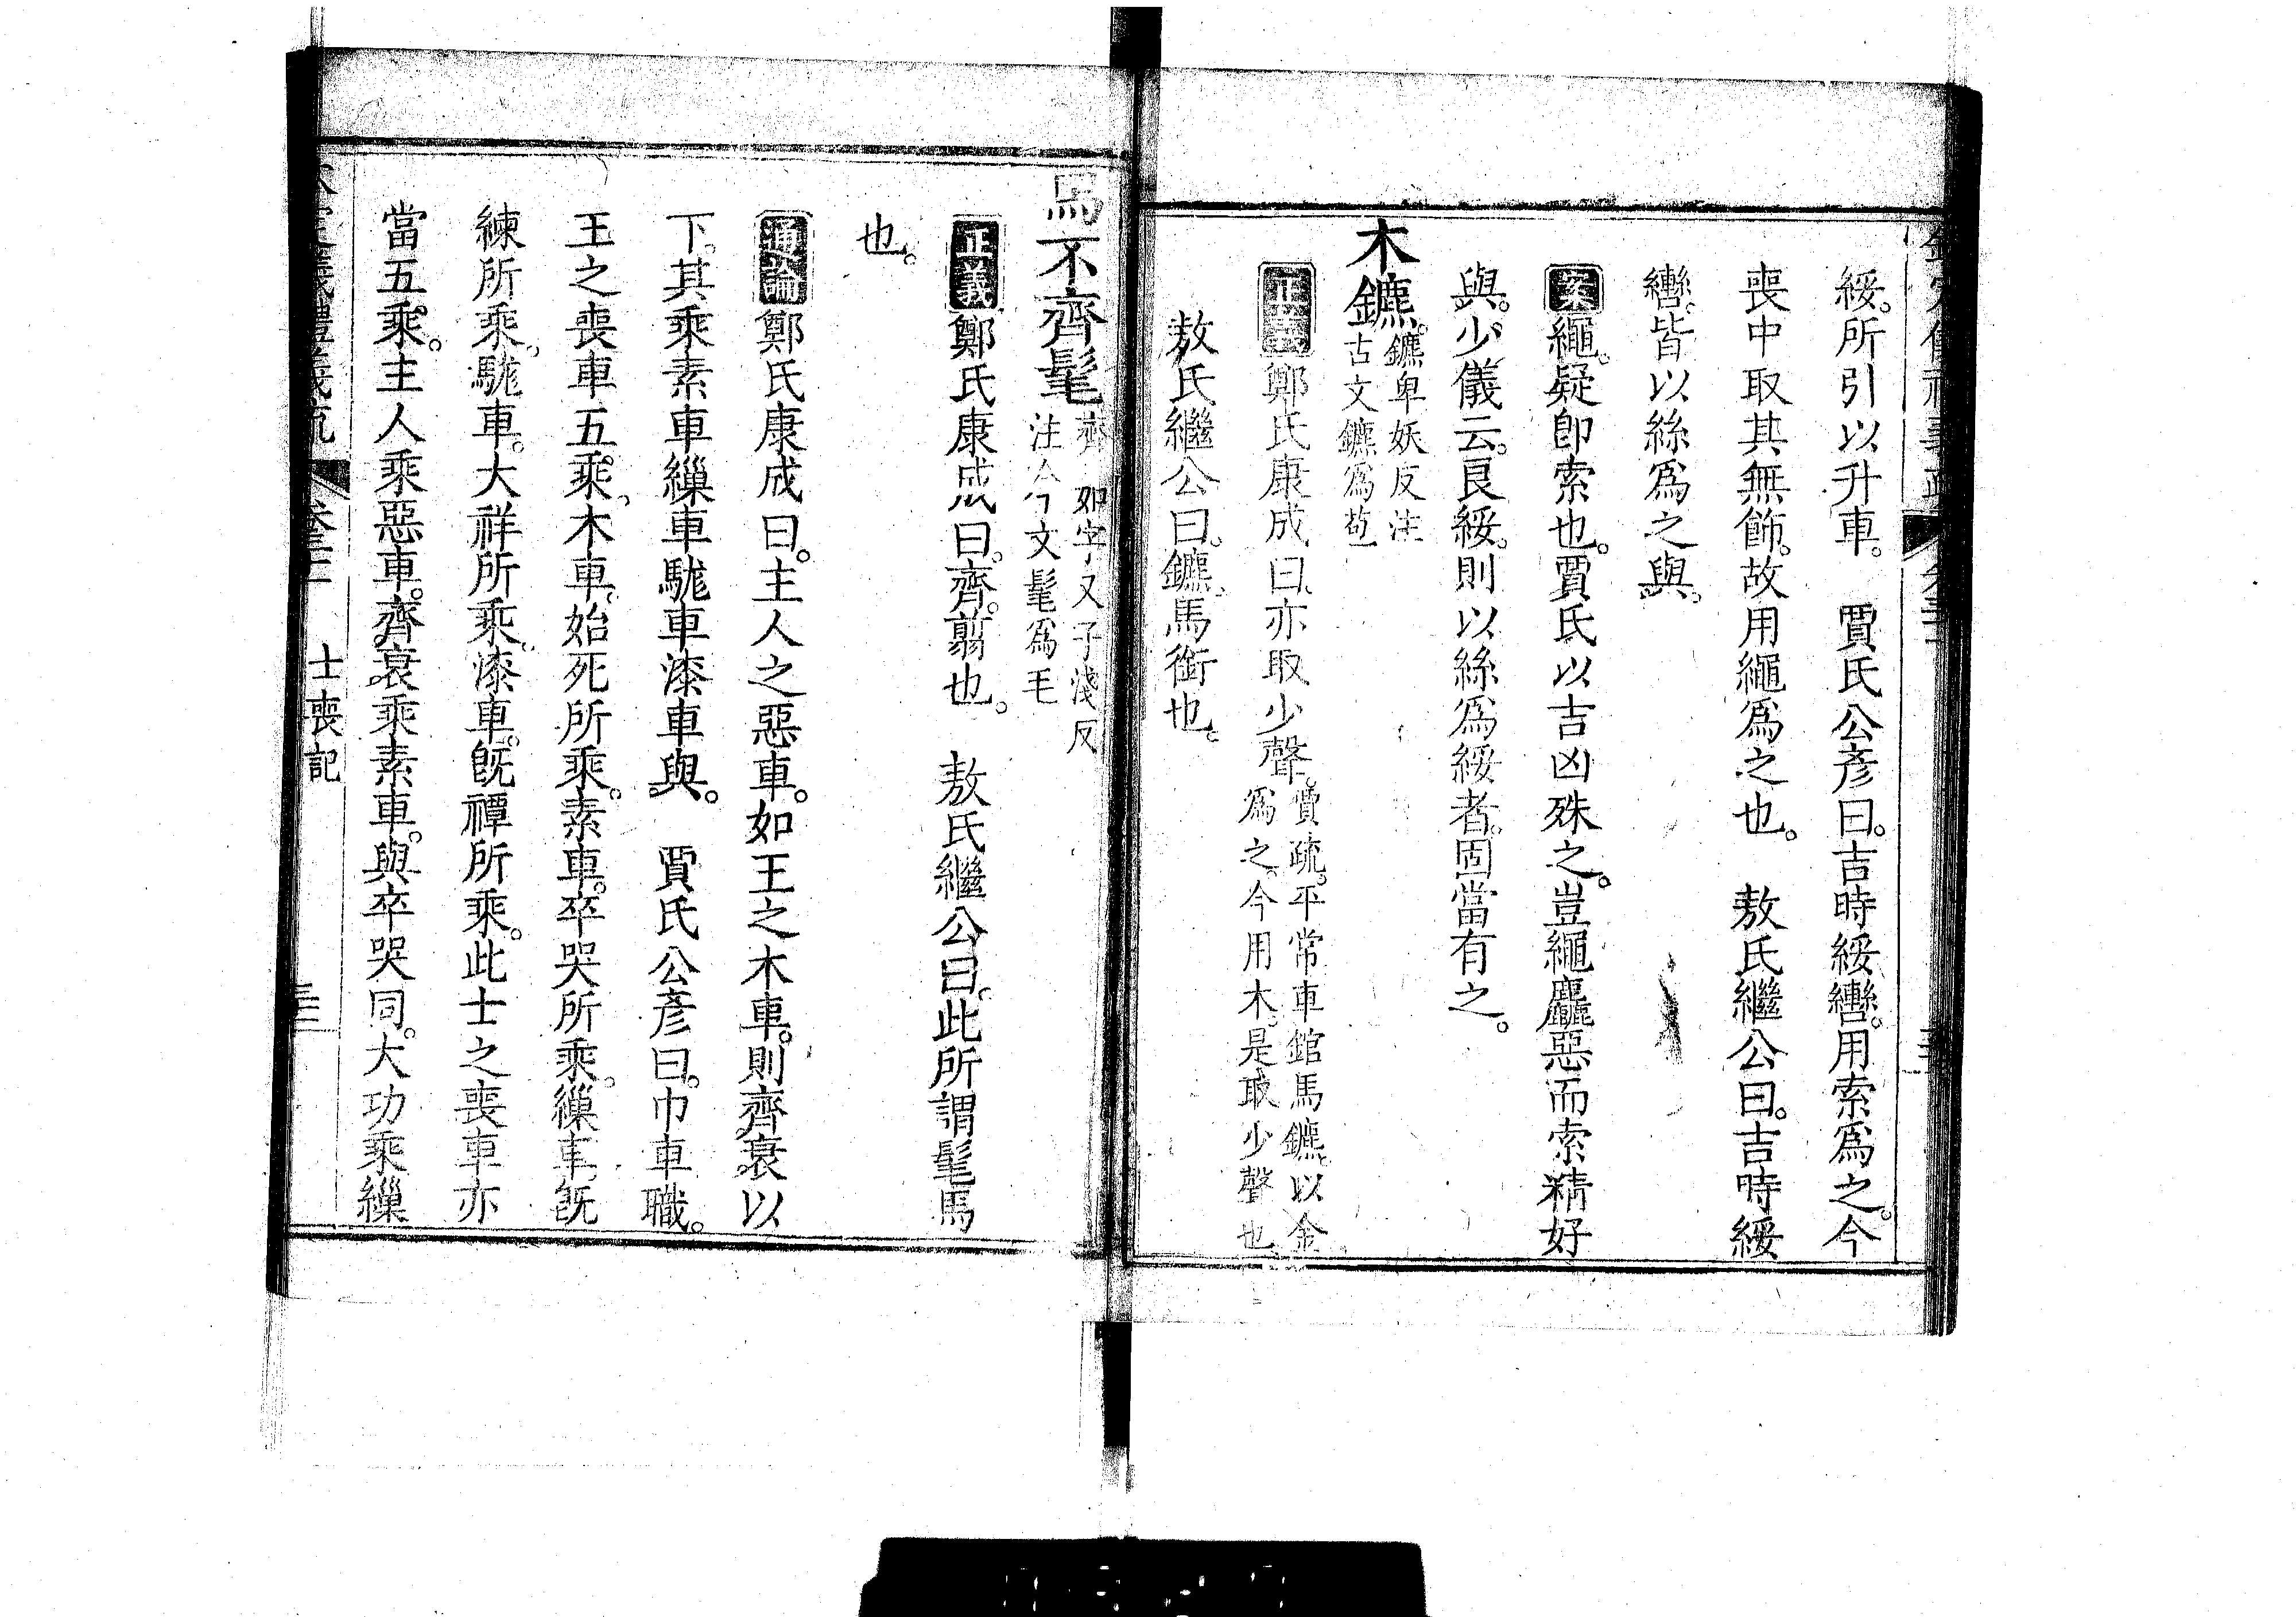 綏。所引以升車。　賈氏公彥曰。吉時綏轡。用索爲之。今
喪中取其無飾。故用繩爲之也。　敖氏繼公曰。吉時綏
轡。皆以絲爲之與。
案繩。疑卽索也。賈氏以吉凶殊之。豈繩麤惡而索精好
與。少儀云。良綏。則以絲爲綏者。固當有之。
木鑣。鑣卑妖反注
古文鑣爲苞
正義鄭氏康成曰。亦取少聲。賈疏。平常車錧馬鑣。以金
爲之。今用木。是取少聲也。
敖氏繼公曰。鑣。馬銜也。
馬不齊髦齊如字又子淺反
注今文髦爲毛
正義鄭氏康成曰。齊。翦也。　敖氏繼公曰。此所謂髦馬
也。
通論鄭氏康成曰。主人之惡車。如王之木車。則齊衰以
下。其乘素車繅車駹車漆車與。　賈氏公彥曰。巾車職。
王之喪車五乘。木車。始死所乘。素車。卒哭所乘。繅車。旣
練所乘。駹車。大祥所乘。漆車。旣禫所乘。此士之喪車亦
當五乘。主人乘惡車。齊衰乘素車。與卒哭同。大功乘繅
士喪記